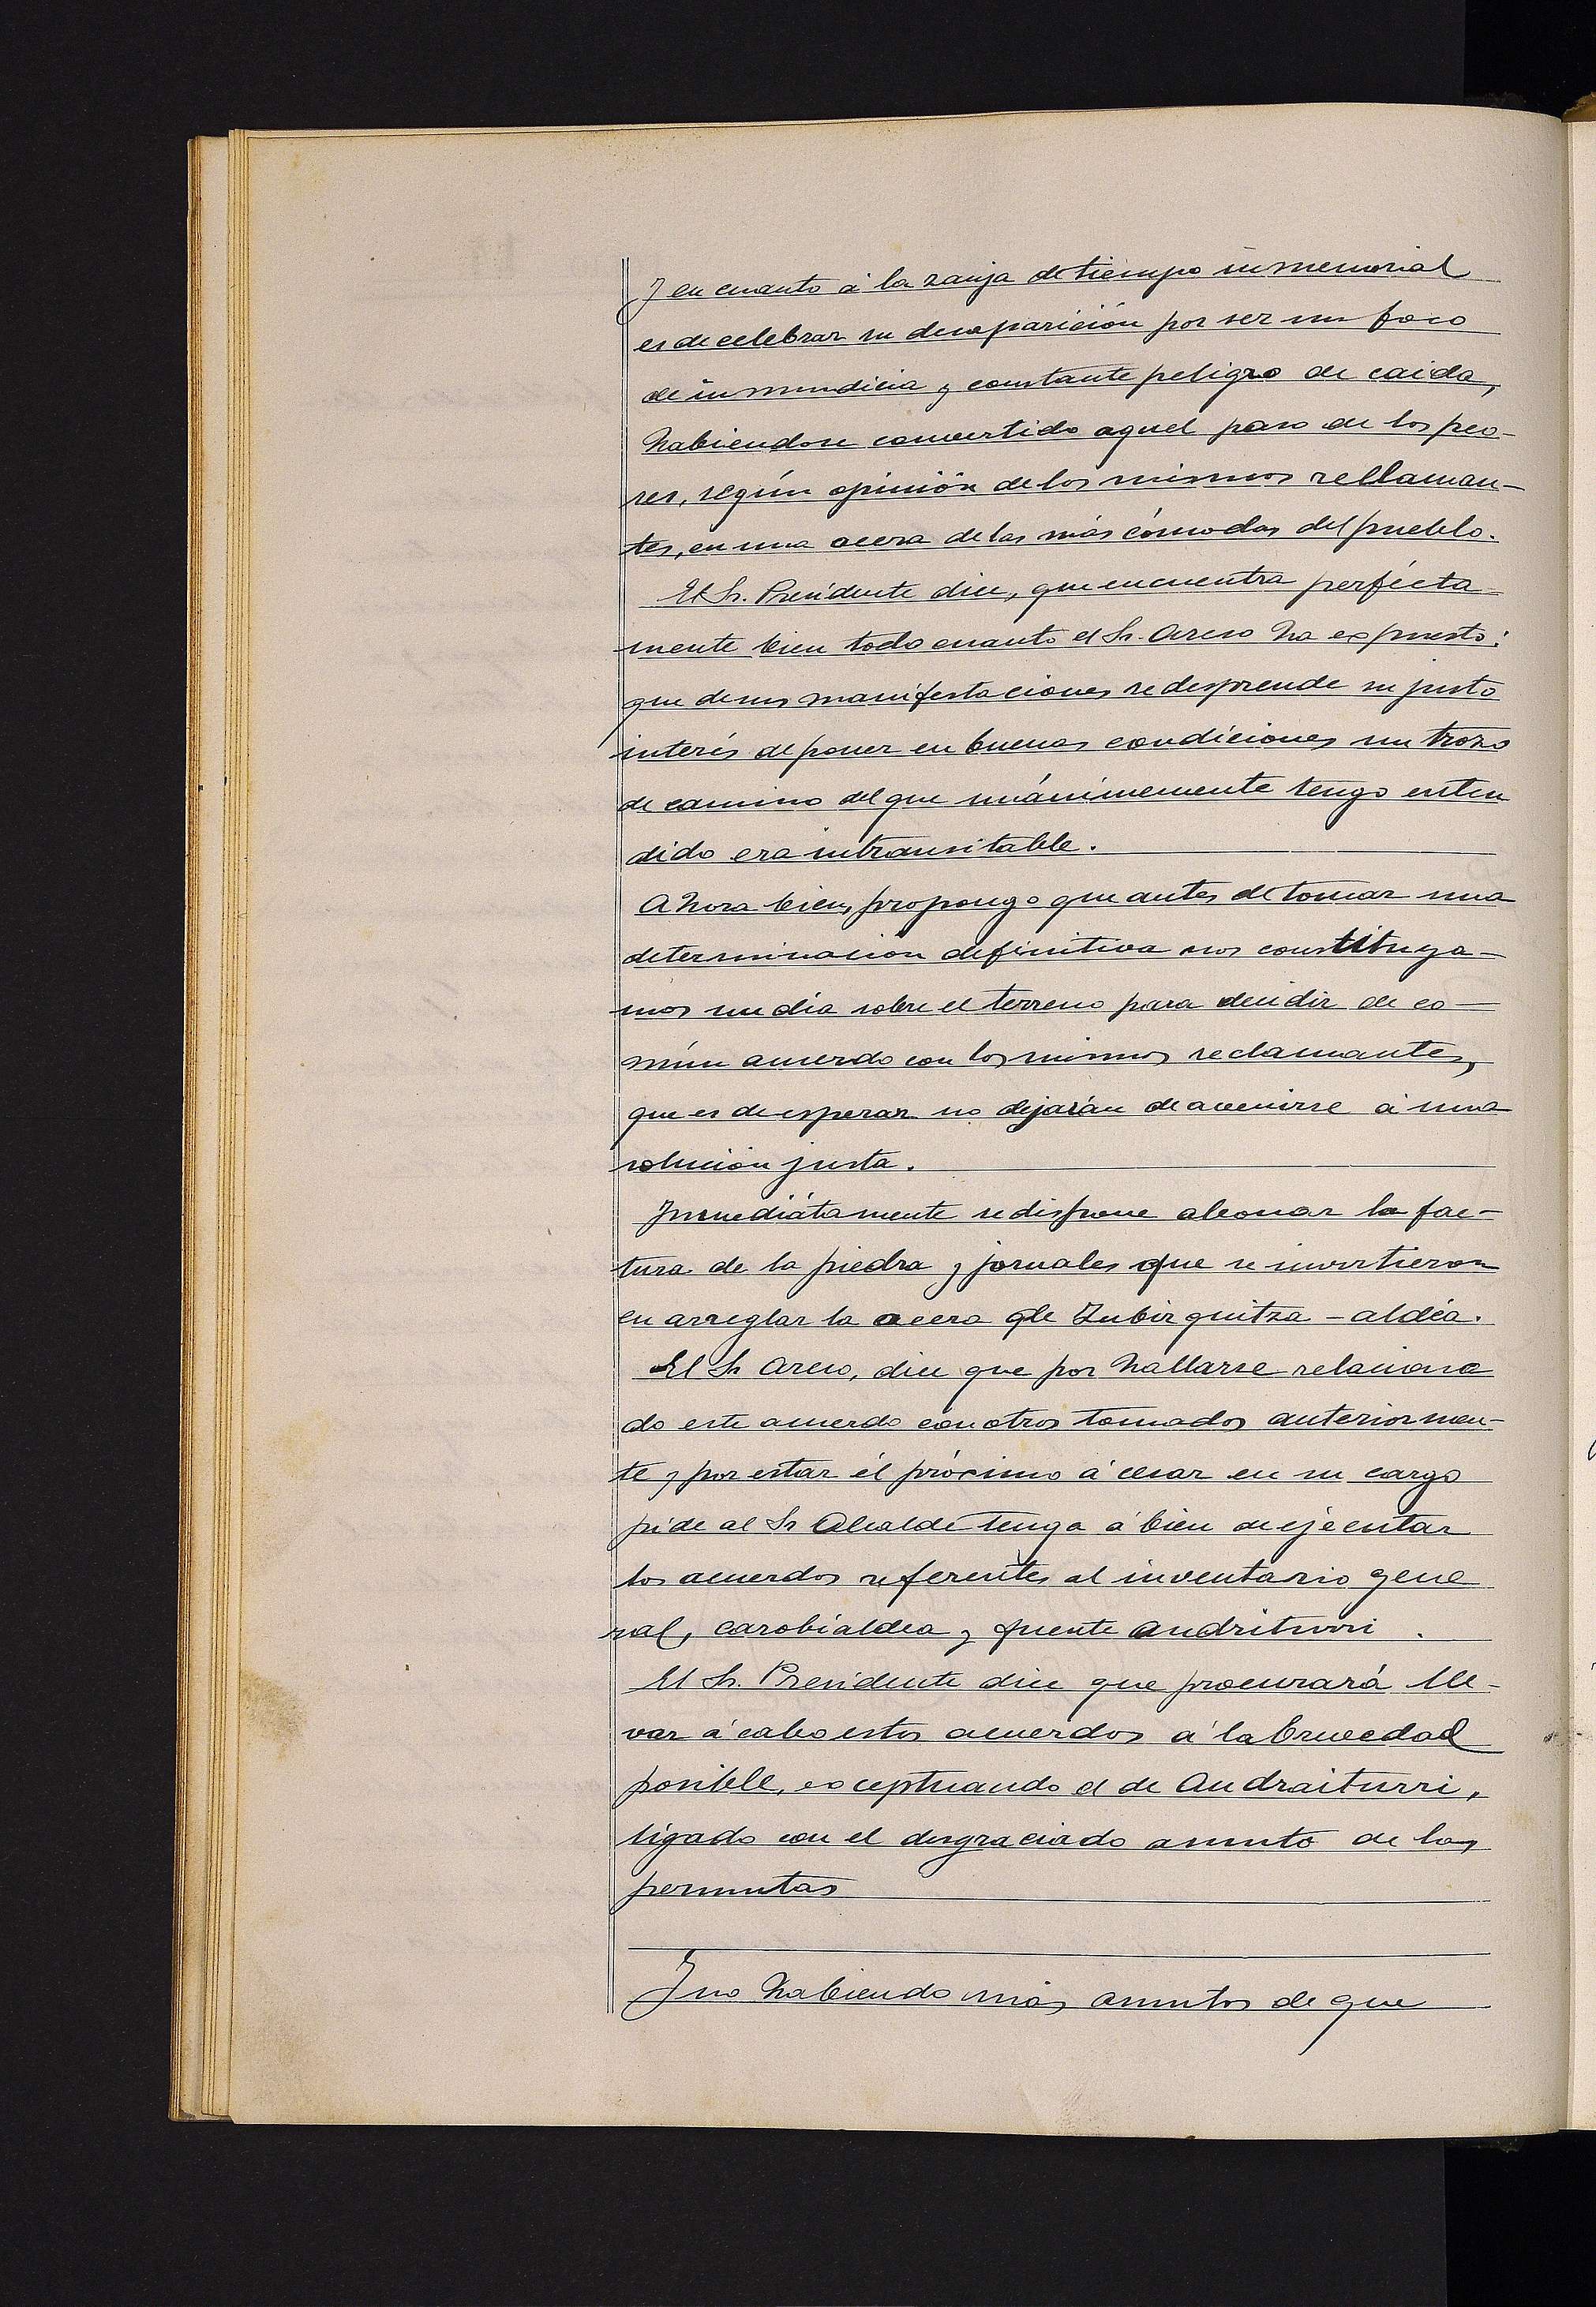 Y en cuanto á la zanja de tiempo inmemorial
es de celebrar su desaparición por ser un foco
de inmundicia y constante peligro de caida,
habiendose convertido aquel paso de los peo-
res, según opinión de los mismos rellaman-
tes, en una acera de las más cómodas del pueblo.
El Sr. Presidente dice, que encuentra perfécta-
mente bien todo cuanto el Sr. Areso ha expuesto:
que de sus manifestaciones se desprende su justo
interés de poner en buenas condiciones un trozo
de camino del que unánimemente tengo enten
dido era intransitable.
Ahora bien, propongo que antes de tomar una
determinación definitiva nos constituya-
mos un dia sobre el terreno para decidir de co-
mún acuerdo con los mismos reclamantes,
que es de esperar no dejarán de avenirse á una
solución justa.
Inmediátamente se dispone abonar la fac-
tura de la piedra y jornales que se invirtieron
en arreglar la acera de Zubirguitza-aldéa.
El Sr Areso, dice que por hallarse relaciona
do este acuerdo con otros tomados anteriormen-
te y por estar él próximo á cesar en su cargo
pide al Sr Alcalde tenga á bien de ejecutar
los acuerdos referentes al inventario gene
ral, carobialdea y fuente Andriturri.
El Sr. Presidente dice que procurará lle-
var á cabo estos acuerdos á la brevedad
posible, exceptuando el de Andraiturri,
ligado con el desgraciado asunto de las
permutas
Y no habiendo más asuntos de que